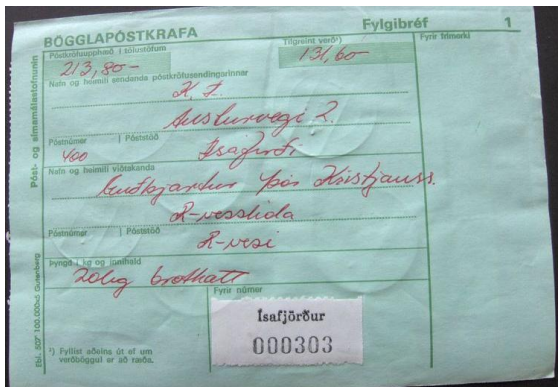 BÖGGLAPÓSTKRAFA
Fylgibréf 1
Póstkröfuupphæð í tölustöfum
Tilgreint verð¹)
Fyrir frímerki
213,80-
131,60
Nafn og heimili sendanda póstkröfusendingarinnar
K. Í.
Austurvegi 2.
Póstnúmer | Póststöð
400 Ísafirði
Nafn og heimili viðtakanda
Guðbjartur Þór Kristjánss.
Póstnúmer | Póststöð
Þyngd í kg og innihald
20kg brothætt
Fyrir númer
Ísafjörður
000303
¹) Fyllist aðeins út ef um
verðböggul er að ræða.
Póst- og símamálastofnunin
Ebl. 507 100.000x5 Gutenberg